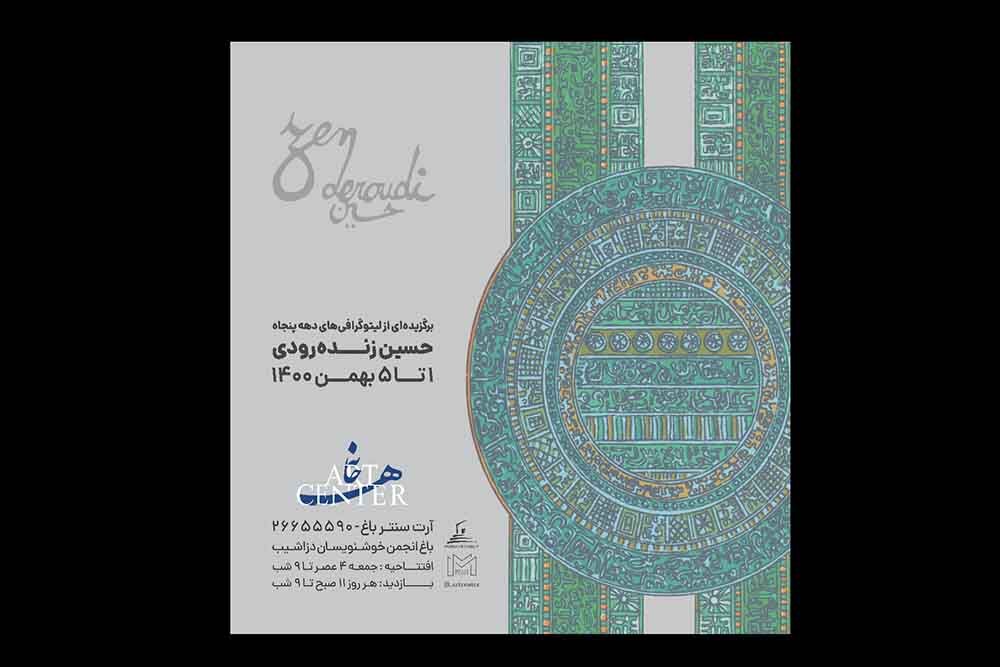 zen
deroudi
حسین
برگزیده‌ای از لیتوگرافی‌های دهه پنجاه
حسین زنده‌رودی
۱ تا ۵ بهمن ۱۴۰۰
هنر خانه
ART
CENTER
آرت سنتر باغ - ۲۶۶۵۵۵۹۰
باغ انجمن خوشنویسان دزاشیب
افتتاحیه : جمعه ۴ عصر تا ۹ شب
بازدید: هر روز ۱۱ صبح تا ۹ شب